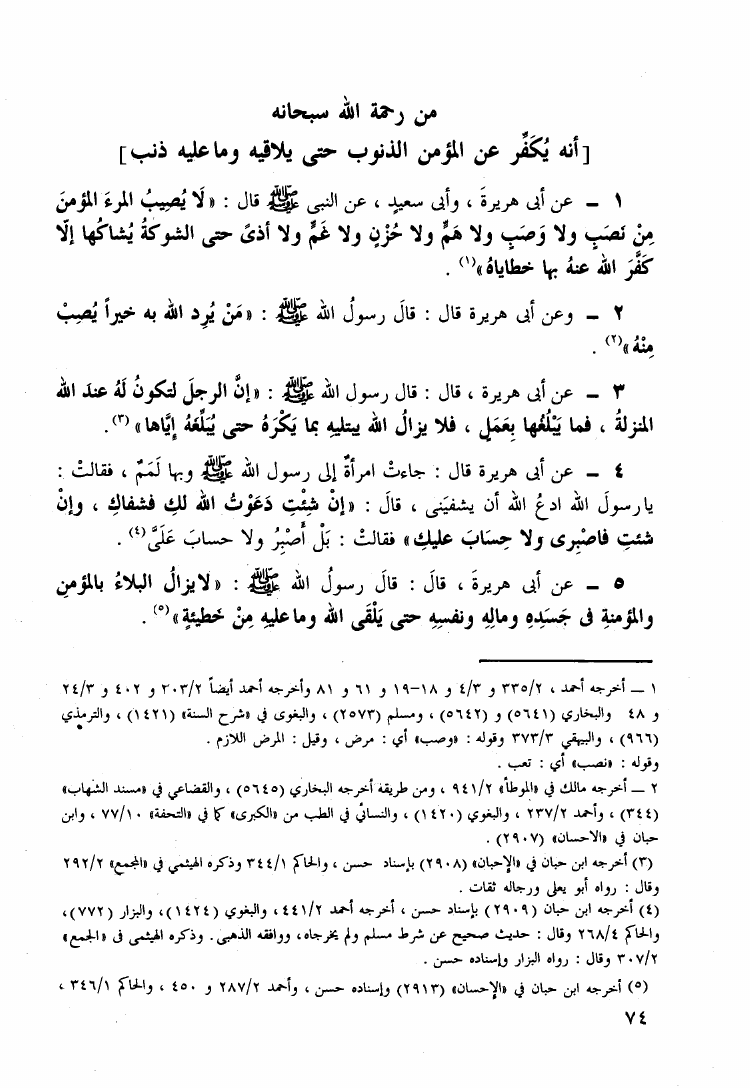 من رحمة الله سبحانه
[أنه يُكَفِّر عن المؤمن الذنوب حتى يلاقيه وما عليه ذنب]
١ – عن أبى هريرةَ ، وأبى سعيدٍ ، عن النبى ﷺ قال : «لَا يُصِيبُ المرءَ المؤمنَ
مِنْ نَصَبٍ ولا وَصَبٍ ولا هَمٍّ ولا حُزْنٍ ولا غَمٍّ ولا أذىً حتى الشوكةُ يُشاكُها إلّا
كَفَّرَ الله عنهُ بها خطاياهُ»(١) .
٢ – وعن أبى هريرة قال : قالَ رسولُ الله ﷺ : «مَنْ يُرِد الله به خيراً يُصِبْ
مِنْهُ»(٢) .
٣ – عن أبى هريرة ، قال : قال رسول الله ﷺ : «إنَّ الرجلَ لتكونُ لَهُ عندَ الله
المنزلةُ ، فما يَبْلُغُها بِعَمَلٍ ، فلا يزالُ الله يبتليهِ بما يَكْرَهُ حتى يُبَلِّغَهُ إيَّاها»(٣) .
٤ – عن أبى هريرة قال : جاءتْ امرأةٌ إلى رسول الله ﷺ وبها لَمَمٌ ، فقالتْ :
يارسولَ الله ادعُ الله أن يشفيَنى ، قالَ : «إنْ شِئْتِ دَعَوْتُ الله لكِ فشفاكِ ، وإنْ
شئتِ فاصْبِرى ولا حِسَابَ عليكِ» فقالتْ : بَلْ أَصْبِرُ ولا حسابَ عَلَىَّ(٤) .
٥ – عن أبى هريرةَ ، قالَ : قالَ رسولُ الله ﷺ : «لايزالُ البلاءُ بالمؤمنِ
والمؤمنةِ فى جَسَدِهِ ومالِهِ ونفسِهِ حتى يَلْقَى الله وماعليهِ مِنْ خَطيئةٍ»(٥) .
١ – أخرجه أحمد ، ٣٣٥/٢ و ٤/٣ و ١٨-١٩ و ٦١ و ٨١ وأخرجه أحمد أيضاً ٢٠٣/٢ و ٤٠٢ و ٢٤/٣
و ٤٨ والبخاري (٥٦٤١) و (٥٦٤٢) ، ومسلم (٢٥٧٣) ، والبغوى في «شرح السنة» (١٤٢١) ، والترمذي
(٩٦٦) ، والبيهقي ٣٧٣/٣ وقوله : «وصب» أي : مرض ، وقيل : المرض اللازم .
وقوله : «نصب» أي : تعب .
٢ – أخرجه مالك في «الموطأ» ٩٤١/٢ ، ومن طريقه أخرجه البخاري (٥٦٤٥) ، والقضاعي في «مسند الشهاب»
(٣٤٤) ، وأحمد ٢٣٧/٢ ، والبغوي (١٤٢٠) ، والنسائي في الطب من «الكبرى» كما في «التحفة» ٧٧/١٠ ، وابن
حبان في «الاحسان» (٢٩٠٧) .
(٣) أخرجه ابن حبان في «الإحبان» (٢٩٠٨) بإسناد حسن ، والحاكم ٣٤٤/١ وذكره الهيثمي في «المجمع» ٢٩٢/٢
وقال : رواه أبو يعلى ورجاله ثقات .
(٤) أخرجه ابن حبان (٢٩٠٩) بإسناد حسن ، أخرجه أحمد ٤٤١/٢ ، والبغوي (١٤٢٤)، والبزار (٧٧٢)،
والحاكم ٢٦٨/٤ وقال : حديث صحيح عن شرط مسلم ولم يخرجاه، ووافقه الذهبي. وذكره الهيثمي فى «الجمع»
٣٠٧/٢ وقال : رواه البزار وإسناده حسن .
(٥) أخرجه ابن حبان في «الإحسان» (٢٩١٣) وإسناده حسن ، وأحمد ٢٨٧/٢ و ٤٥٠ ، والحاكم ٣٤٦/١ ،
٧٤